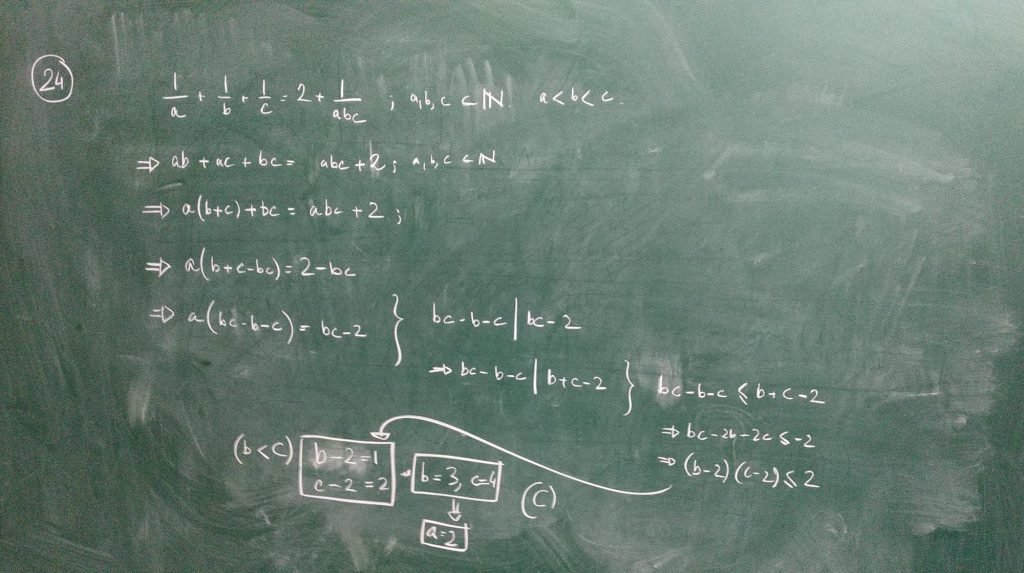 24
1/a + 1/b + 1/c = 2 + 1/abc ; a,b,c ∈ ℕ a<b<c.
⇒ ab + ac + bc = abc + 2 ; a,b,c ∈ ℕ
⇒ a(b+c)+bc = abc + 2 ;
⇒ a(b+c-bc) = 2-bc
⇒ a(bc-b-c) = bc-2 } bc-b-c | bc-2
⇒ bc-b-c | b+c-2 } bc-b-c ≤ b+c-2
⇒ bc-2b-2c ≤ -2
⇒ (b-2)(c-2) ≤ 2
(b<c) b-2=1
c-2=2
→ b=3, c=4 (C)
⇓
a=2